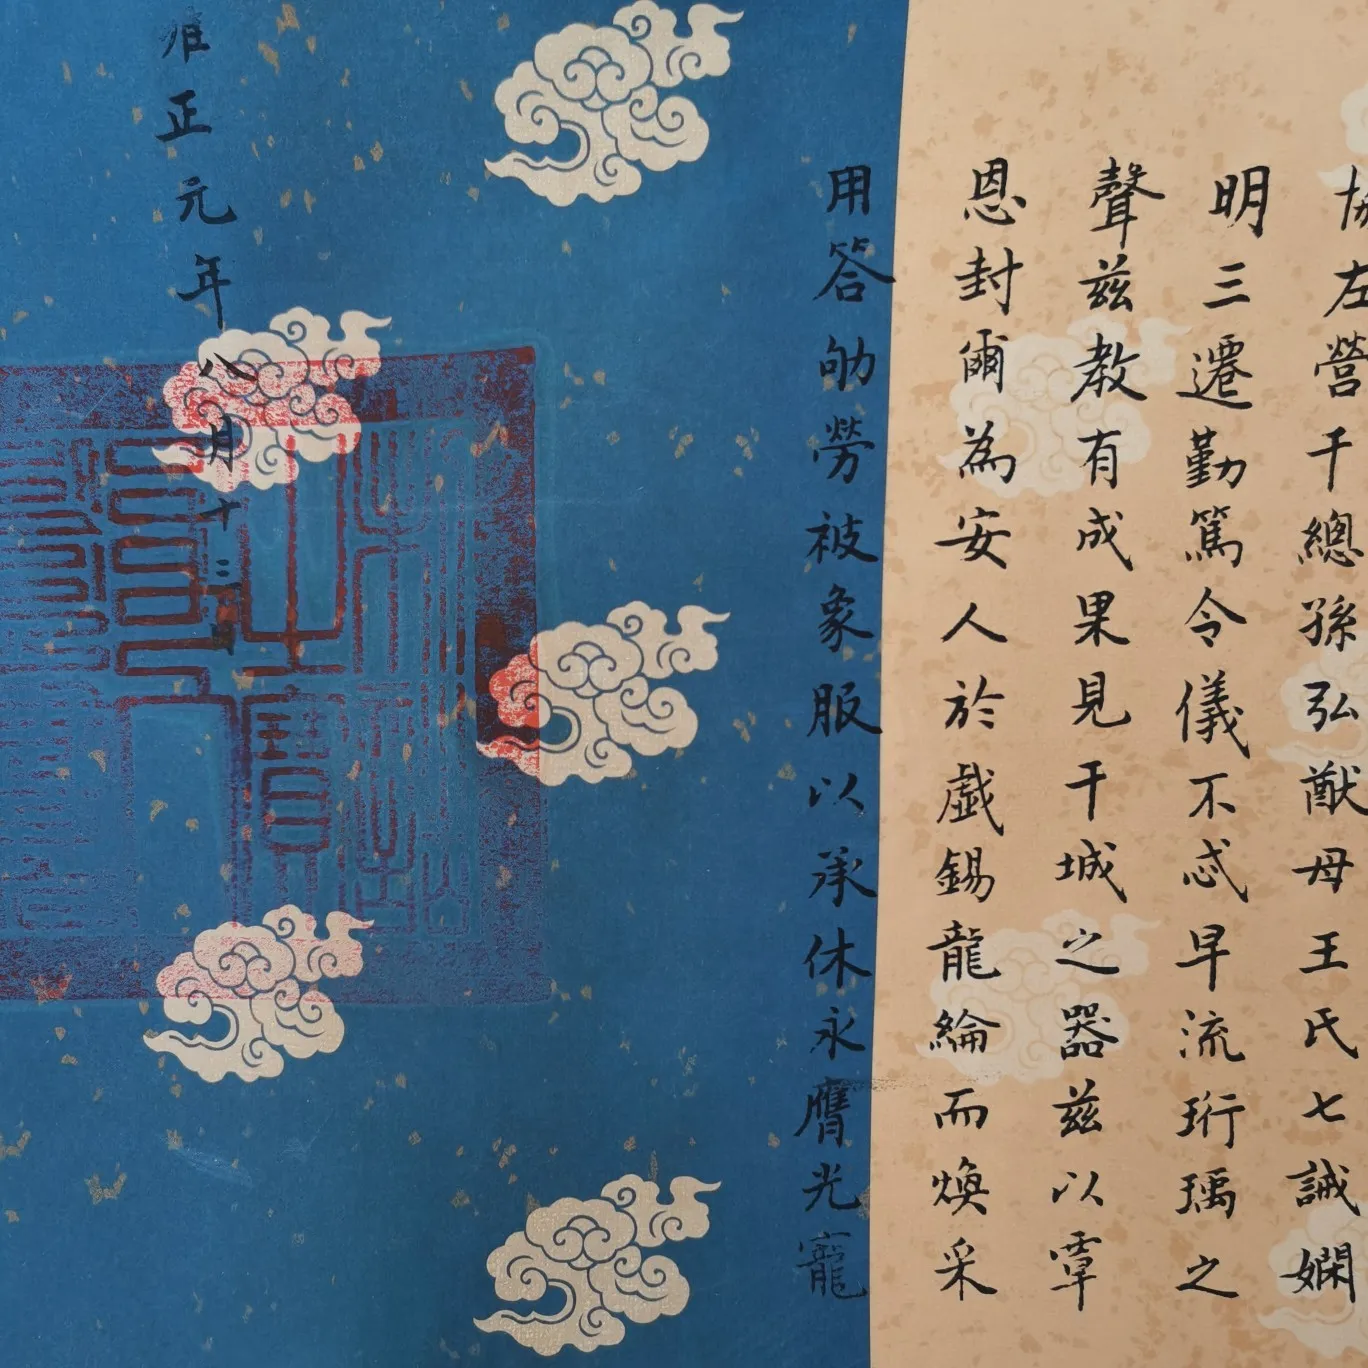 協左營千總孫弘猷母王氏七誡嫻
明三遷勤篤令儀不忒早流珩瑀之
聲兹教有成果見干城之器兹以覃
恩封爾為安人於戲錫龍綸而煥采
用答劬勞被象服以承休永膺光寵
雍正元年八月十三